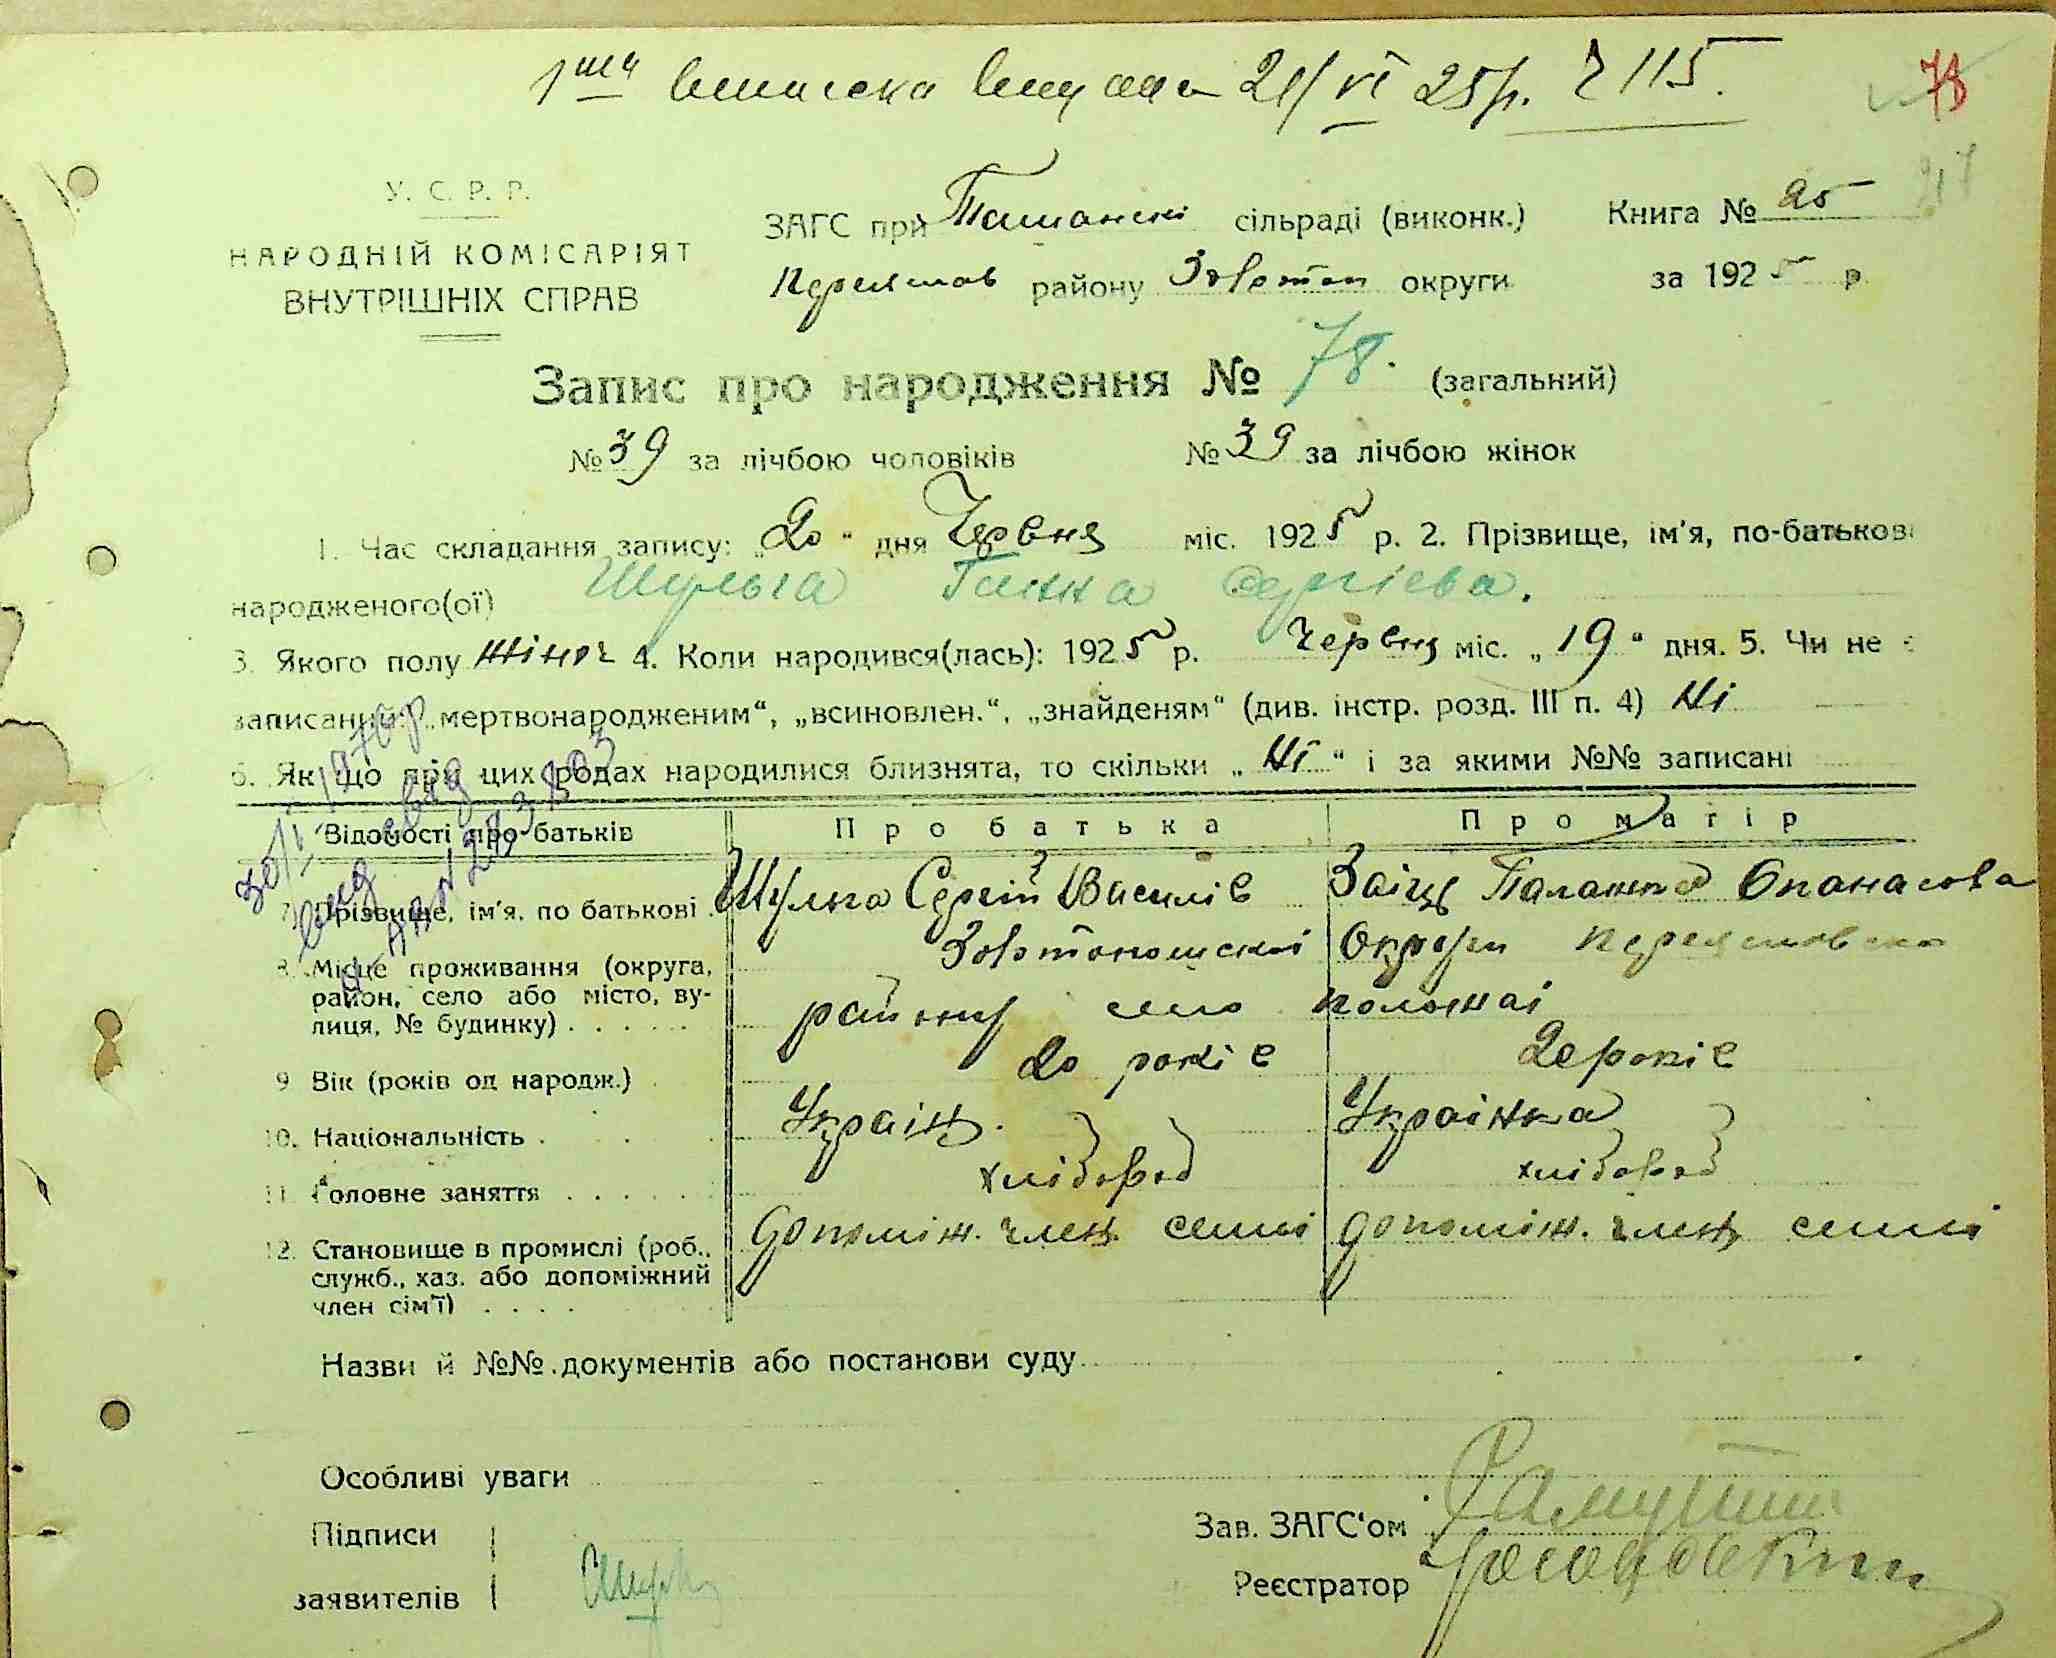 1ша виписка видана 21/VI 25р. Ч 115.
78
217
У. С. Р. Р.
НАРОДНІЙ КОМІСАРІЯТ
ВНУТРІШНІХ СПРАВ
ЗАГС при Ташанскі сільраді (виконк.) Книга № 25
Переяслав району Золотон округи за 1925 р.
Запис про народження № 78. (загальний)
№ 39 за лічбою чоловіків № 39 за лічбою жінок
1. Час складання запису: „20“ дня Червня міс. 1925 р. 2. Прізвище, ім'я, по-батькові
народженого(ої) Шульга Ганна Сергієва.
3. Якого полу жіноч 4. Коли народився(лась): 1925 р. Червня міс. „19“ дня. 5. Чи не є
записаний: „мертвонародженим“, „всиновлен.“, „знайденям“ (див. інстр. розд. III п. 4) Ні
6. Як що при цих родах народилися близнята, то скільки „Ні“ і за якими №№ записані
Відомості про батьків Про батька Про матір
7. Прізвище, ім'я, по батькові Шульга Сергій Василів Заїць Палажка Опанасова
8. Місце проживання (округа, Золотоношскої Округи Переяславско
район, село або місто, ву- району село Положаі
лиця, № будинку) . . . . . .
9 Вік (років од народж.) 20 років 20 років
10. Національність . Украінць. Украінка
11. Головне заняття . . . . . хлібороб хлібороб
12. Становище в промислі (роб., допоміж. член семьі допоміж. член семьі
служб., хаз. або допоміжний
член сім'ї) . . . .
Назви й №№ документів або постанови суду
Особливі уваги
Підписи
Зав. ЗАГС'ом
заявителів
Реєстратор